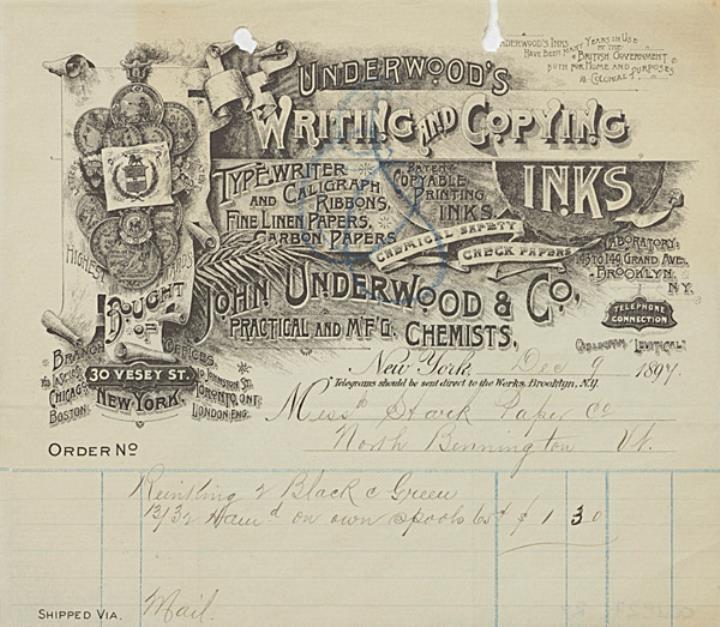 UNDERWOOD'S INKS
HAVE BEEN MANY YEARS IN USE
BY THE
BRITISH GOVERNMENT
BOTH FOR HOME AND PURPOSES
COLONIAL
UNDERWOOD'S
WRITING AND COPYING
INKS
TYPEWRITER
AND CALIGRAPH
RIBBONS,
FINE LINEN PAPERS,
CARBON PAPERS
PATENT
COPYABLE
PRINTING
INKS.
CHEMICAL SAFETY
CHECK PAPERS
HIGHEST AWARDS
LABORATORY:
145 TO 149, GRAND AVE.,
BROOKLYN,
N.Y.
BOUGHT
OF
JOHN UNDERWOOD & CO.
PRACTICAL AND M'F'G. CHEMISTS.
TELEPHONE
CONNECTION
BRANCH OFFICES.
30 VESEY ST.
NEW YORK.
CHICAGO
BOSTON
TORONTO, ONT.
LONDON ENG.
"LEVITICAL"
New York, Dec 9 1897.
Telegrams should be sent direct to the Works, Brooklyn, N.Y.
Messrs Stark Paper Co
North Bennington Vt.
ORDER NO
2 Black c Green
13/32 on own spools 65¢ $ 1 30
SHIPPED VIA. Mail.